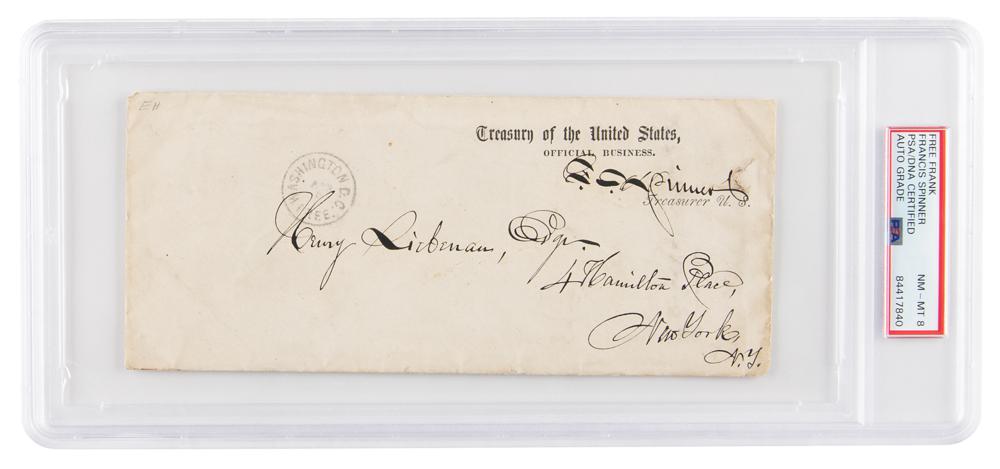 EH
Treasury of the United States,
OFFICIAL BUSINESS.
F. E. Spinner
Treasurer U. S.
WASHINGTON D.C.
FREE
Henry Liebenau, Esqr.
4 Hamilton Place,
New York,
N.Y.
FREE FRANK
FRANCIS SPINNER
PSA/DNA CERTIFIED
AUTO GRADE
NM - MT 8
84417840
PSA